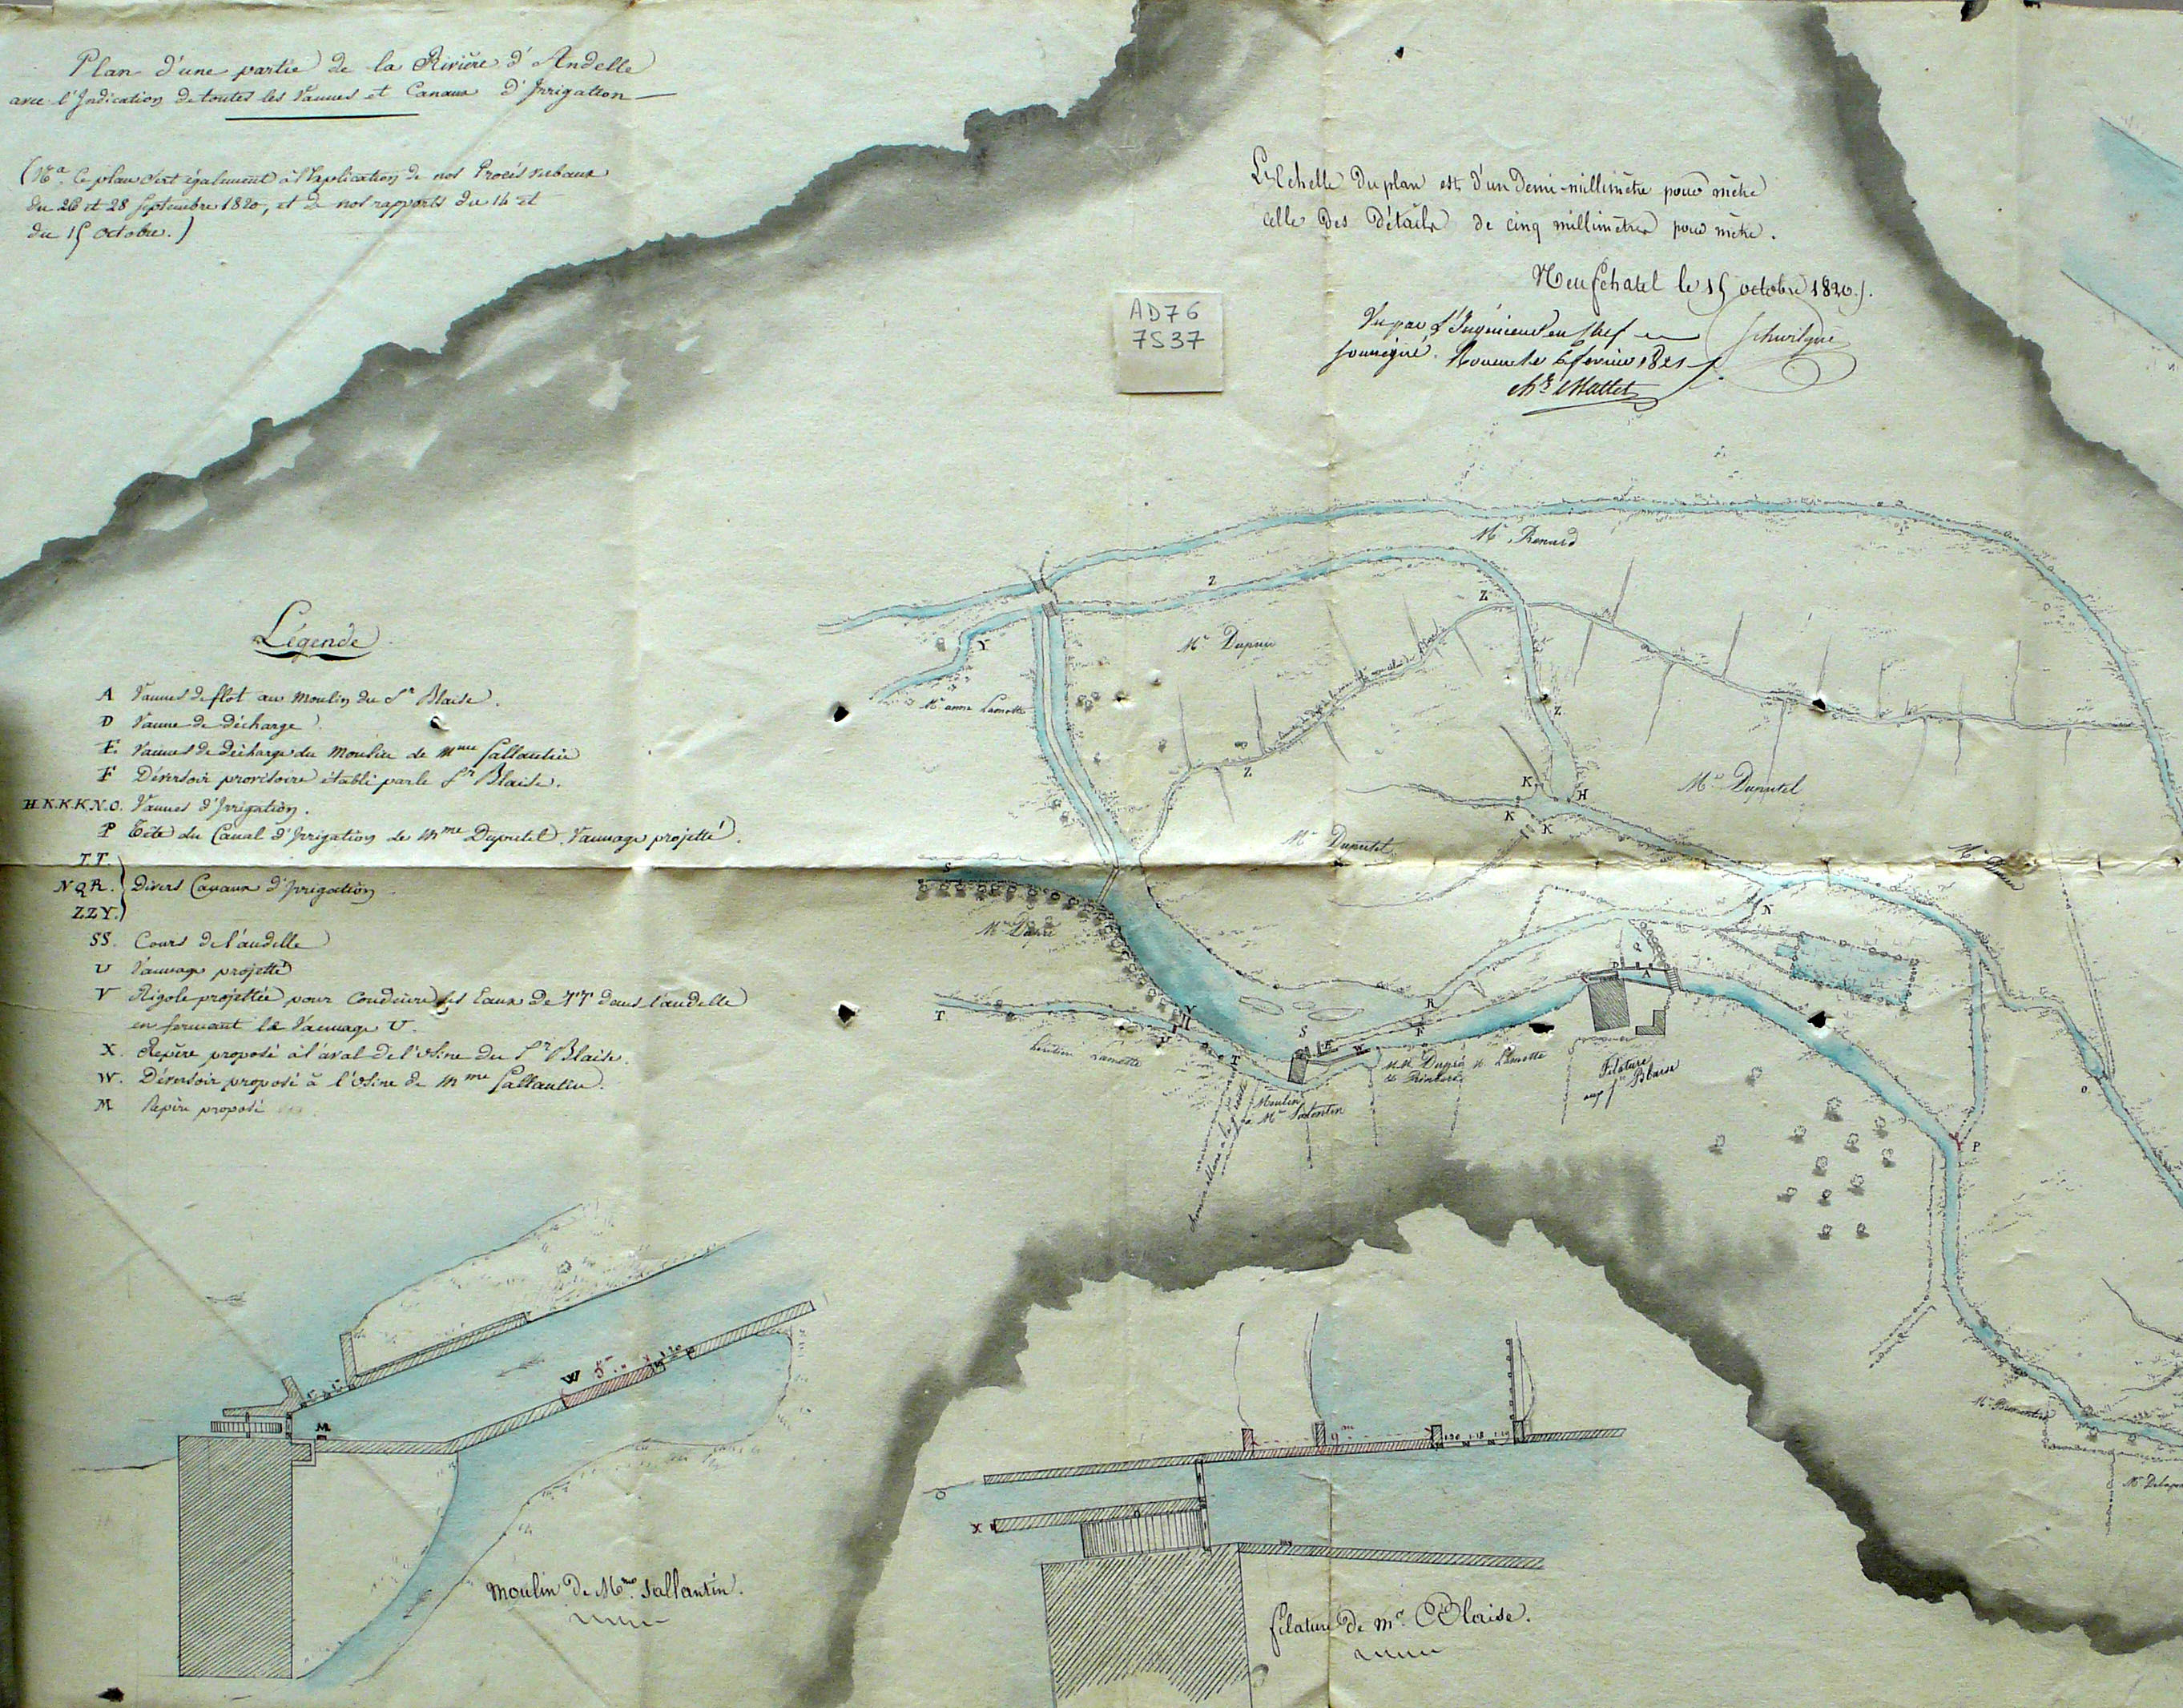 Plan d'une partie de la Rivière d'Andelle
avec l'Indication de toutes les Vannes et Canaux d'Irrigation
(Nª. Ce plan sert également à l'explication de nos Procès verbaux
du 26 et 28 Septembre 1820, et de nos rapports du 14 et
du 15 octobre.)
L'Echelle du plan est d'un Demi-millimètre pour mètre
celle des Détails de cinq millimètres pour mètre.
Neufchatel le 15 octobre 1820.
Vu par l'Ingénieur en chef
soussigné. Rouen le 6 fevrier 1821
Schwilgué
Mallet
AD76
7S37
Légende
A Vannes de flot au Moulin du Sr Blaise.
D Vanne de décharge
E. Vannes de décharge du Moulin de Mme Sallantin
F Déversoir provisoire établi par le Sr Blaise.
H.K.K.K.N.O. Vannes d'Irrigation.
P Tête du Canal d'Irrigation de Mme Duputel. Vannage projetté.
T.T.
N Q R. Divers Canaux d'Irrigation
Z.Z.Y.
SS. Cours de l'andelle
U Vannage projetté
V Rigole projettée pour conduire les Eaux de TT dans l'andelle
en fermant le Vannage U.
X. Repère proposé à l'aval de l'Usine du Sr Blaise.
W. Déversoir proposé à l'Usine de Mme Sallantin.
M Repère proposé
Mr Renard
Z
Z
Y
Mr Dupuis
Mr anne Lamotte
Z
Z
K
H
K
K
Mr Duputel
Mr Duputel
S
Mr Dupré
N
Q
D
A
R
T
V
U
T
S
E
W
F
heritier Lamotte
MM. Dupré
Lamotte
Moulin
a Me Salentin
Filature
au Sr Blaise
O
P
Mr Delapor
W 5m
M
Moulin de Mme Sallantin.
9m
1.20 1.18 1.19
X
filature de Mr Blaise.